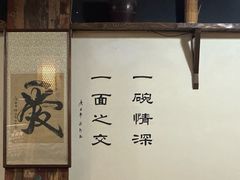 一碗情深
一面之交
愛